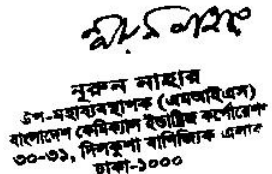 নুরুন নাহার
উপ-মহাব্যবস্থাপক (এমআইএস)
বাংলাদেশ কেমিক্যাল ইন্ডাষ্ট্রিজ কর্পোরেশন
৩০-৩১, দিলকুশা বাণিজ্যিক এলাকা
ঢাকা-১০০০